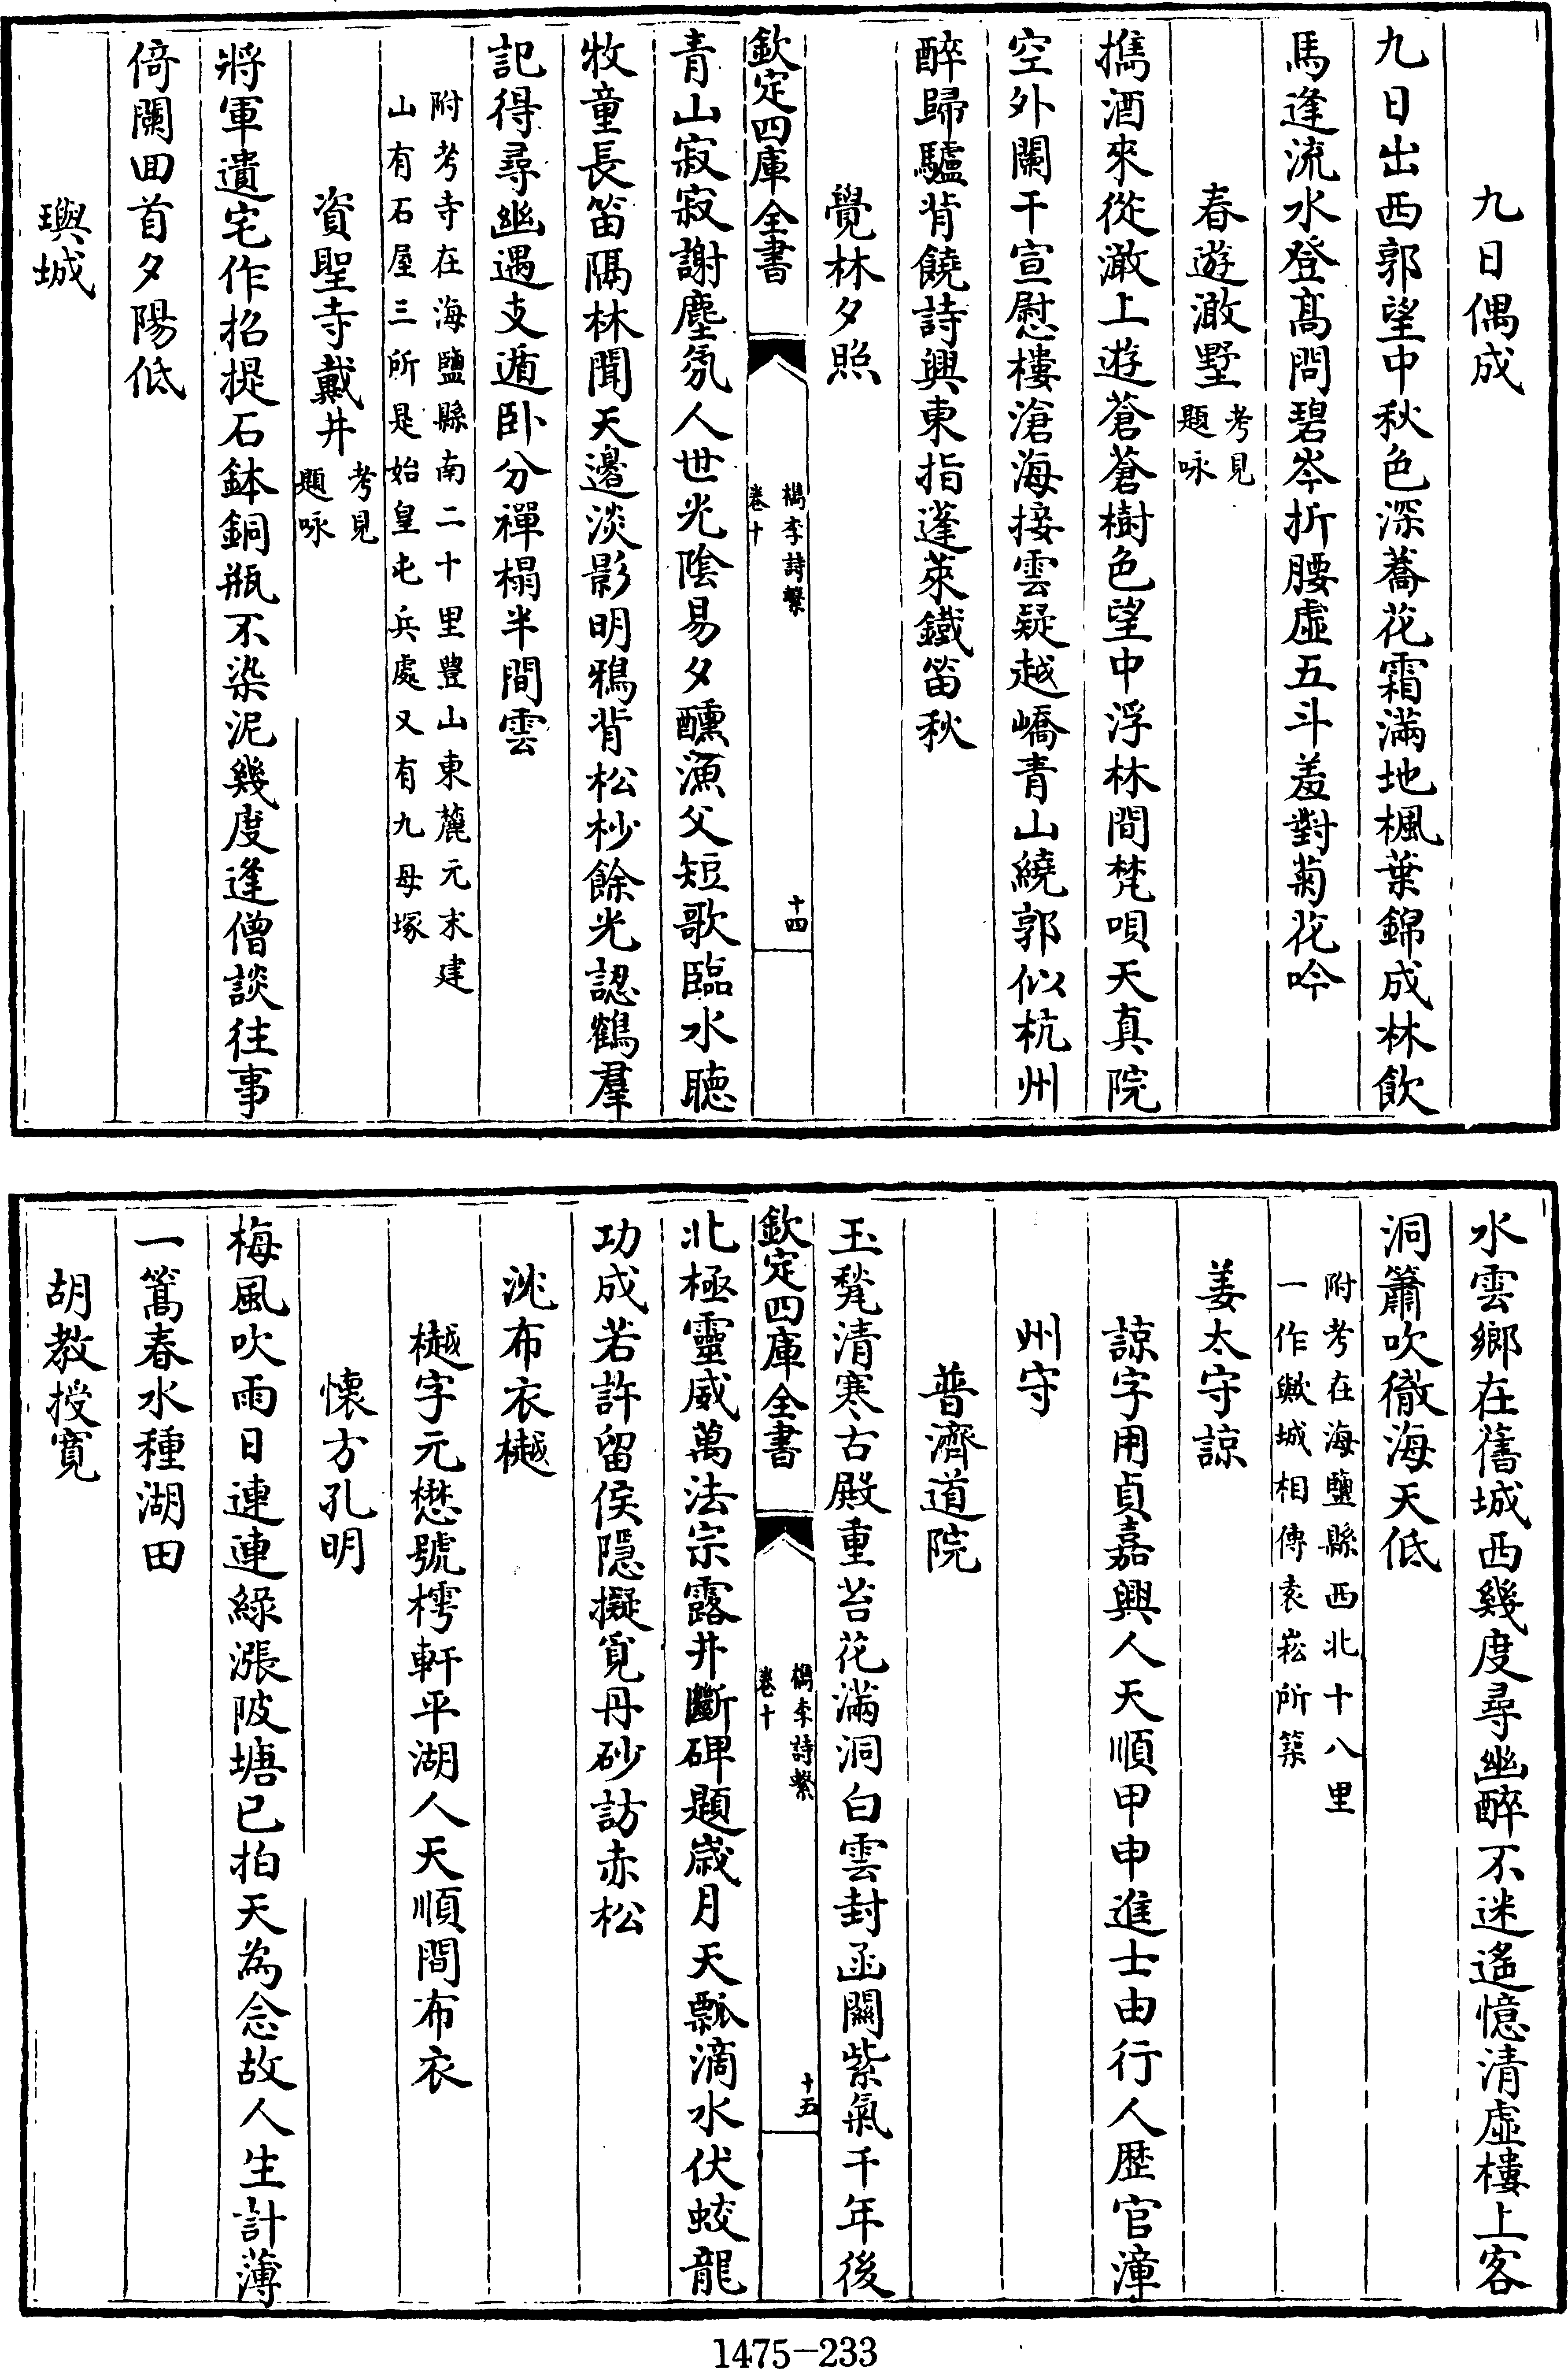 九日偶成
九日出西郭望中秋色深蕎花霜滿地楓葉錦成林飲
馬逢流水登髙問碧岑折腰虛五斗羞對菊花吟
春遊澉墅考見
題咏
擕酒來從澉上遊蒼蒼樹色望中浮林間梵唄天真院
空外闌干宣慰樓滄海接雲疑越嶠青山繞郭似杭州
醉歸驢背饒詩興東指蓬萊鐵笛秋
覺林夕照
欽定四庫全書
檇李詩繫
卷十
十四
青山寂寂謝塵氛人世光陰易夕醺漁父短歌臨水聴
牧童長笛隔林聞天邊淡影明鴉背松杪餘光認鶴羣
記得尋幽遇支遁卧分禪榻半間雲
附考寺在海鹽縣南二十里豊山東麓元末建
山有石屋三所是始皇屯兵處又有九母塚
資聖寺戴井考見
題咏
將軍遺宅作招提石鉢銅瓶不染泥幾度逢僧談往事
倚闌囬首夕陽低
璵城
水雲鄉在舊城西幾度尋幽醉不迷遙憶清虛樓上客
洞簫吹徹海天低
附考在海鹽縣西北十八里
一作㺞城相傳袁崧所築
姜太守諒
諒字用貞嘉興人天順甲申進士由行人歴官漳
州守
普濟道院
玉甃清寒古殿重苔花滿洞白雲封函關紫氣千年後
欽定四庫全書
檇李詩繫
卷十
十五
北極靈威萬法宗露井斷碑題歲月天瓢滴水伏蛟龍
功成若許留侯隱擬覓丹砂訪赤松
沈布衣樾
樾字元懋號樗軒平湖人天順間布衣
懷方孔明
梅風吹雨日連連綠漲陂塘已拍天為念故人生計薄
一篙春水種湖田
胡教授寛
1475-233